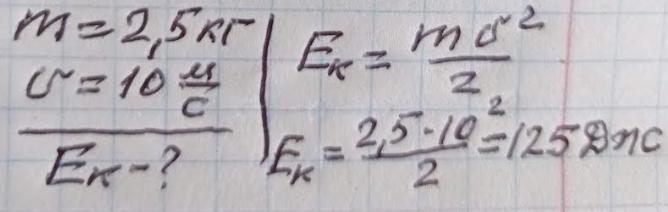 m = 2,5 кг
υ = 10 м/с
Eк - ?
Eк = mυ²/2
Eк = 2,5·10²/2 = 125 Дж